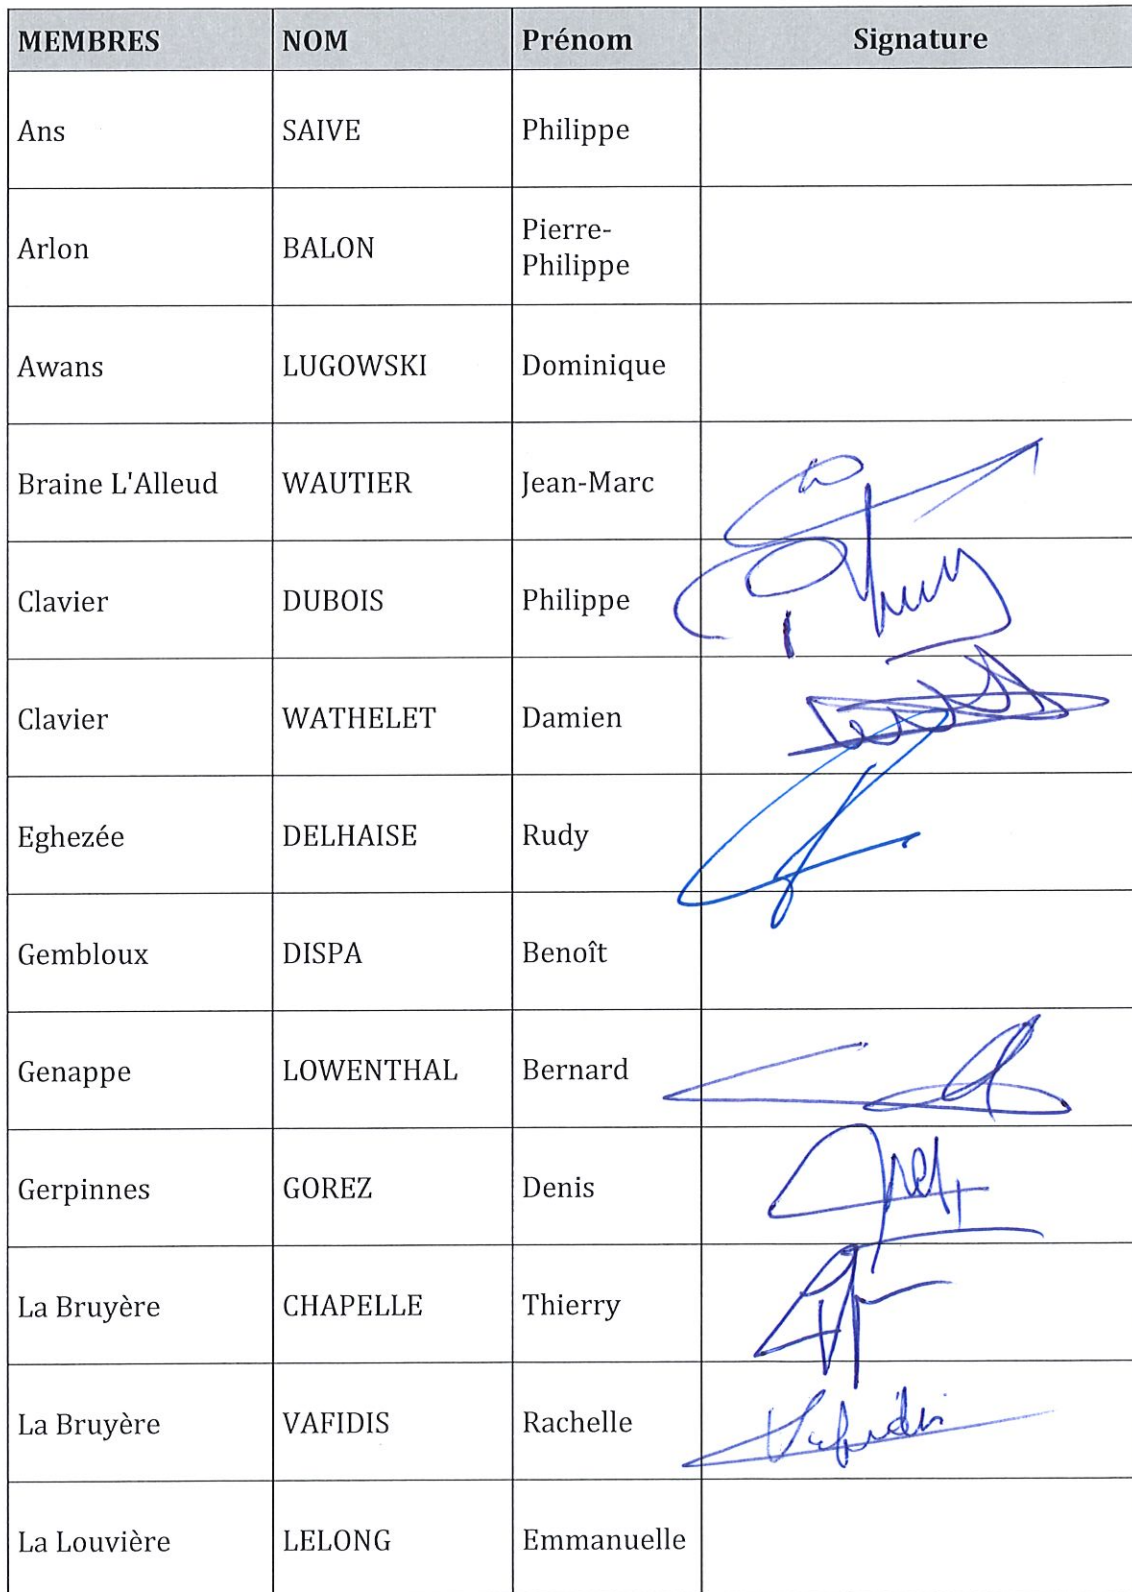 MEMBRES NOM Prénom Signature
Ans SAIVE Philippe
Arlon BALON Pierre-
Philippe
Awans LUGOWSKI Dominique
Braine L'Alleud WAUTIER Jean-Marc
Clavier DUBOIS Philippe
Clavier WATHELET Damien
Eghezée DELHAISE Rudy
Gembloux DISPA Benoît
Genappe LOWENTHAL Bernard
Gerpinnes GOREZ Denis
La Bruyère CHAPELLE Thierry
La Bruyère VAFIDIS Rachelle Vafidis
La Louvière LELONG Emmanuelle